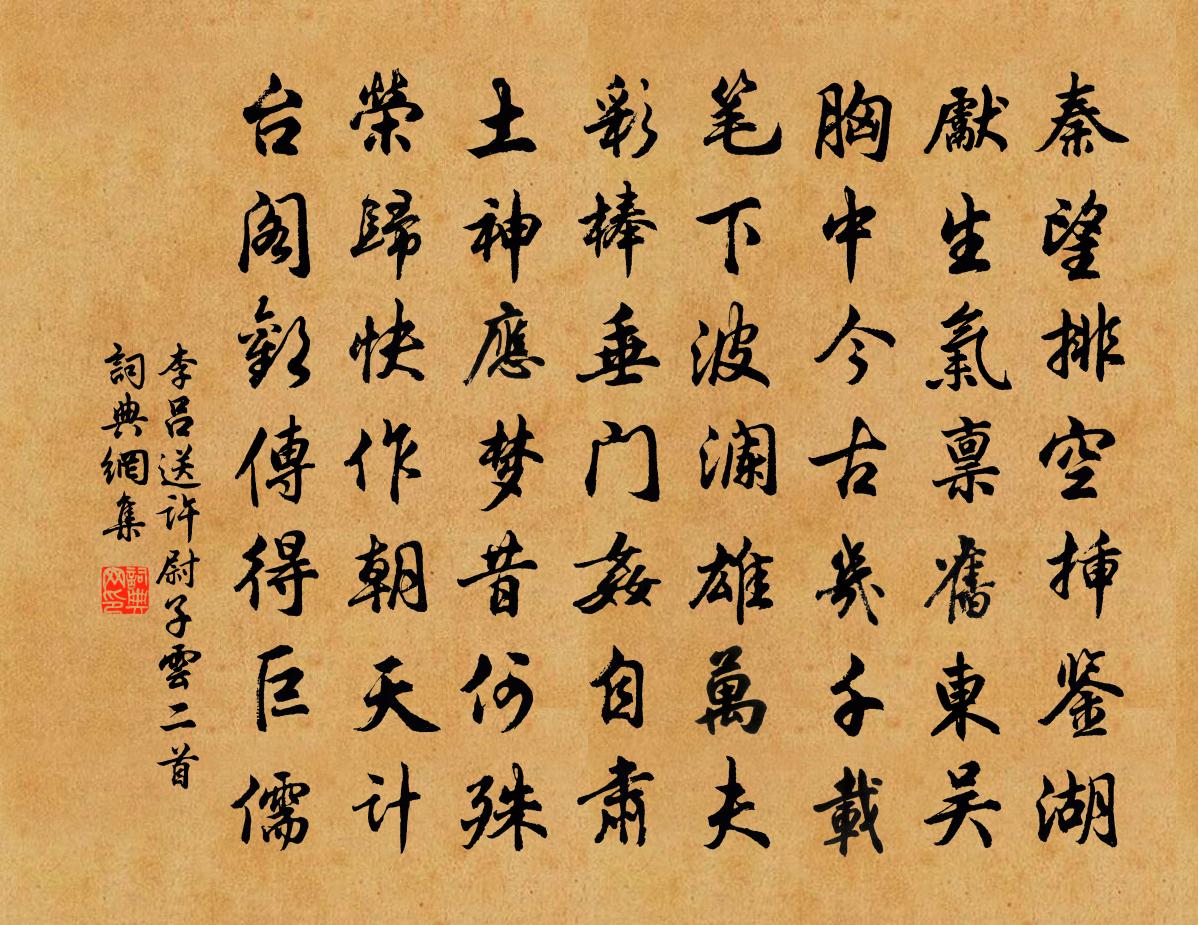 秦望排空揷鑒湖
獻生氣禀舊東吴
胸中今古幾千載
笔下波澜雄萬夫
彩棒垂门姦自肅
土神應梦昔何殊
榮歸快作朝天计
台阁歡傳得巨儒
李吕送許尉子雲二首
詞典網集
詞典网印